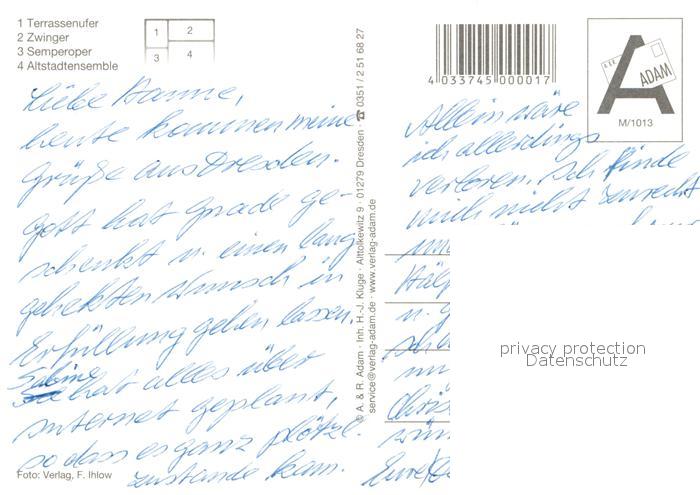 1 Terrassenufer
2 Zwinger
3 Semperoper
4 Altstadtensemble
1 2
3 4
Liebe Hanne,
heute kommen meine
Grüße aus Dresden.
Gott hat grade ge-
schenkt u. einen lang
gehekten Wunsch in
Erfüllung gehen lassen.
Sabine
hat alles über
Internet geplant,
so dass es ganz plötzl.
zustande kam.
Foto: Verlag, F. Ihlow
© A. & R. Adam · Inh. H.-J. Kluge · Alttolkewitz 9 · 01279 Dresden · ☎ 0351 / 2 51 68 27
service@verlag-adam.de · www.verlag-adam.de
4 033745 000017
A. & R. ADAM
M/1013
Allein wäre
ich allerdings
verloren. Ich finde
mich nicht zurecht
u. g
Chris
wün
Eure
privacy protection
Datenschutz